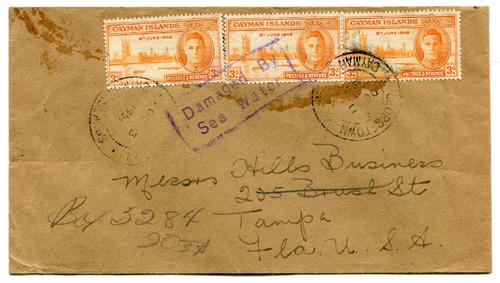 CAYMAN ISLANDS CAYMAN ISLANDS CAYMAN ISLANDS
8TH JUNE 1946 8TH JUNE 1946 8TH JUNE 1946
3D 3D 3D
POSTAGE & REVENUE POSTAGE & REVENUE POSTAGE & REVENUE
Damaged By
Sea Water
GEORGETOWN
CAYMAN
Messrs Hills Business
205 Brush St
Box 3284 Tampa
Fla. U. S. A.